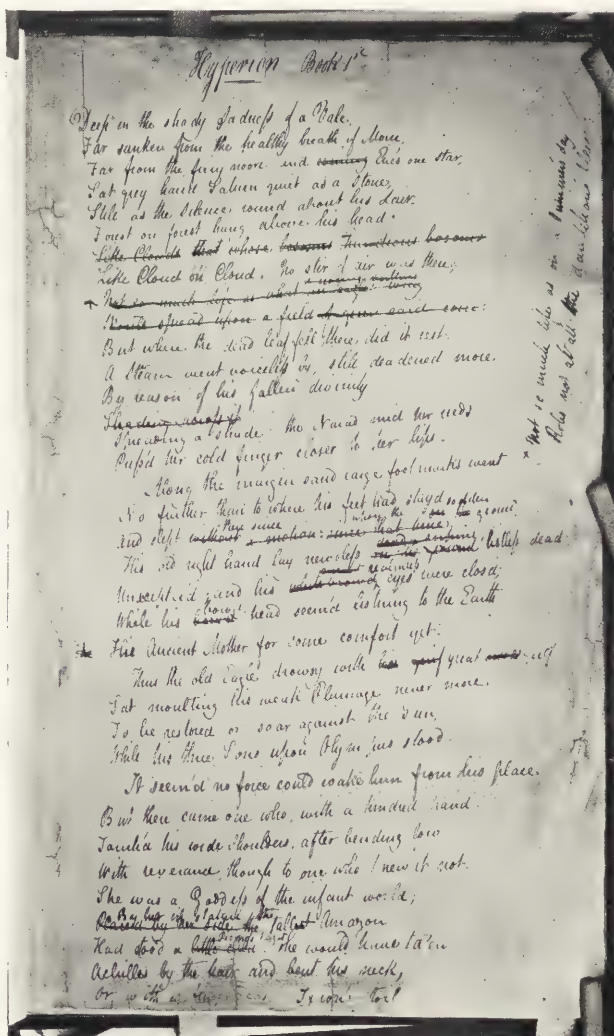 Hyperion Book 1st
Deep in the shady sadness of a Vale,
Far sunken from the healthy breath of Morn,
Far from the firey noon and coming Eve's one star,
Sat grey hair'd Saturn quiet as a Stone,
Still as the Silence round about his Lair.
Forest on forest hung above his head.
Like Clouds that whose bosoms Thundrous bosoms
Like Cloud on Cloud. No stir of air was there;
Not so much life as what
spread upon a field of
But where the dead leaf fell there did it rest.
A Stream went voiceless by, still deadened more.
By reason of his fallen divinity
Spreading a shade: the Naiad mid her reeds
Press'd her cold finger closer to her lips.
Along the margin sand large footmarks went
No further than to where his feet had stay'd
And slept without a motion: since that time
His old right hand lay nerveless listless dead
Unsceptred; and his white brow'd eyes were clos'd;
While his bow'd head seem'd listning to the Earth
His Ancient Mother for some comfort yet.
Thus the old Eagle drowsy with great
Sat moulting his weak Plumage never more.
To be restored or soar against the Sun,
While his three Sons upon Olympus stood.
It seem'd no force could wake him from his place.
But there came one who, with a kindred hand
Touch'd his wide Shoulders, after bending low
With reverence, though to one who knew it not.
She was a Goddess of the infant world;
By her in stature the tallest Amazon
Had stood a little she would have ta'en
Achilles by the hair and bent his neck,
or with a Ixion's toil
* Not so much life as on a summer's day
Robs not at all the dandelion's fleece: